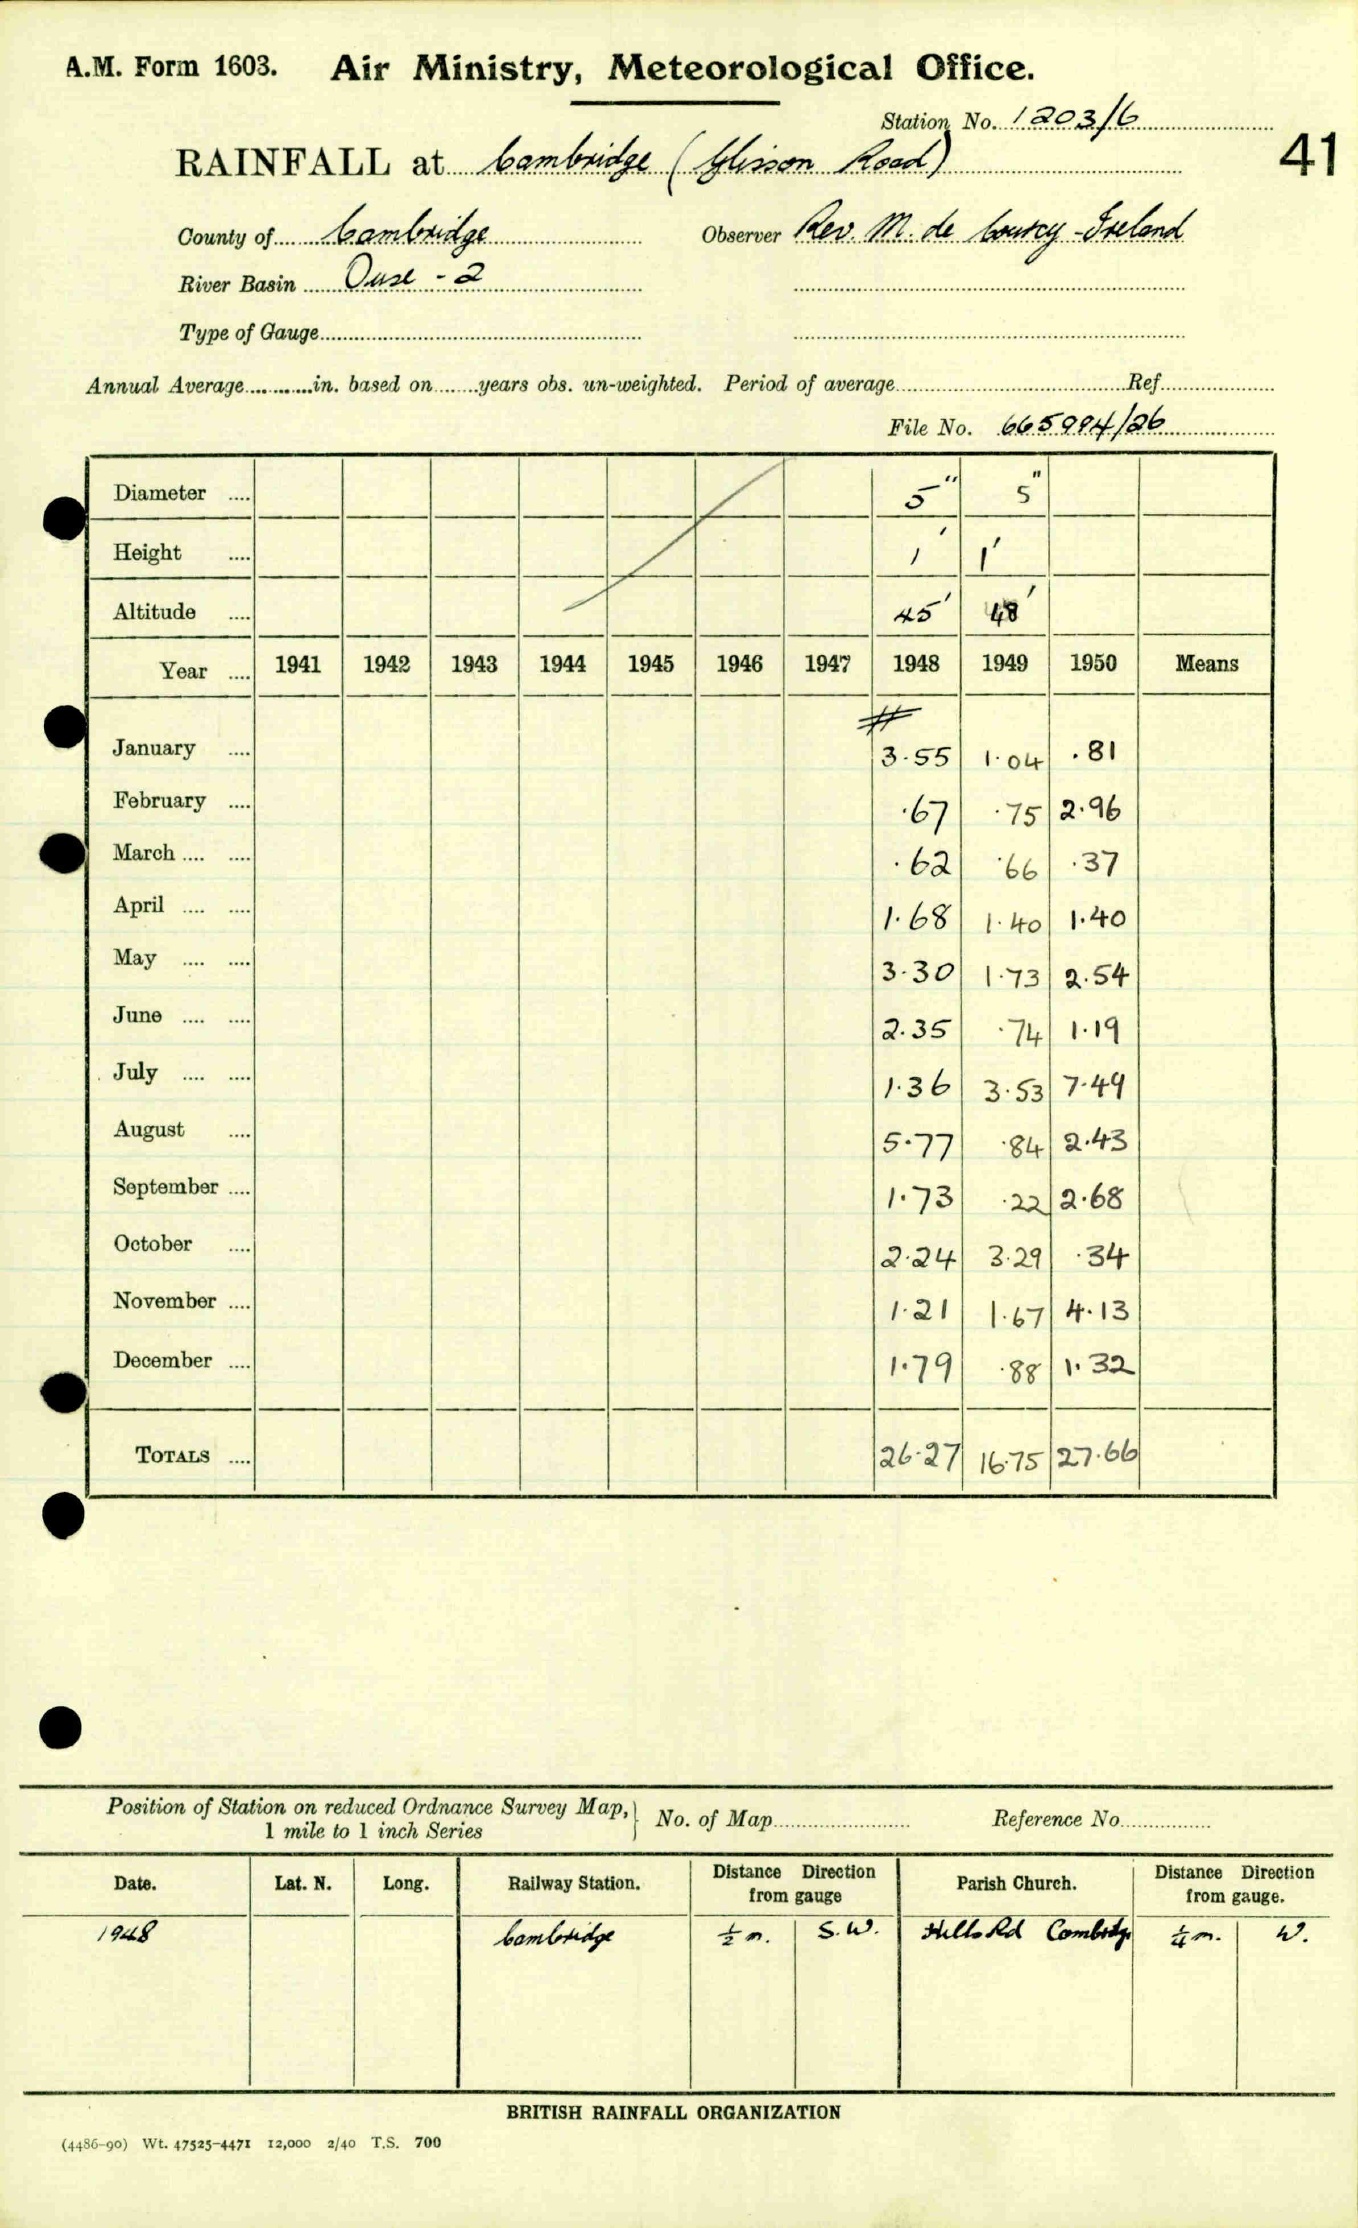 A.M. Form 1603. Air Ministry, Meteorological Office.
Station No. 1203/6
41
RAINFALL at Cambridge (Glisson Road)
County of Cambridge Observer Rev. M. de Courcy-Ireland
River Basin Ouse - 2
Type of Gauge
Annual Average in. based on years obs. un-weighted. Period of average Ref.
File No. 665994/26
Diameter 5" 5"
Height 1' 1'
Altitude 45' 48'
Year 1941 1942 1943 1944 1945 1946 1947 1948 1949 1950 Means
#
January 3.55 1.04 .81
February .67 .75 2.96
March .62 .66 .37
April 1.68 1.40 1.40
May 3.30 1.73 2.54
June 2.35 .74 1.19
July 1.36 3.53 7.49
August 5.77 .84 2.43
September 1.73 .22 2.68
October 2.24 3.29 .34
November 1.21 1.67 4.13
December 1.79 .88 1.32
TOTALS 26.27 16.75 27.66
Position of Station on reduced Ordnance Survey Map,
1 mile to 1 inch Series } No. of Map Reference No.
Date. Lat. N. Long. Railway Station. Distance Direction from gauge Parish Church. Distance Direction from gauge.
1948 Cambridge ½ m. S.W. Hills Rd Cambdge ¼ m. W.
BRITISH RAINFALL ORGANIZATION
(4486-90) Wt. 47525-4471 12,000 2/40 T.S. 700